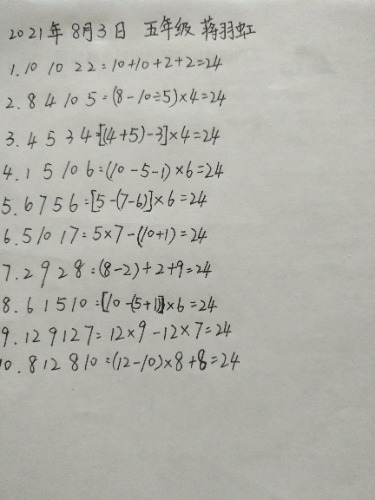 2021年8月3日 五年级 蒋羽虹
1.10 10 2 2=10+10+2+2=24
2.8 4 10 5=(8-10÷5)×4=24
3.4 5 3 4=[(4+5)-3]×4=24
4.1 5 10 6=(10-5-1)×6=24
5.6 7 5 6=[5-(7-6)]×6=24
6.5 10 1 7=5×7-(10+1)=24
7.2 9 2 8=(8-2)+2+9=24
8.6 1 5 10=[10-(5+1)]×6=24
9.12 9 12 7=12×9-12×7=24
10.8 12 8 10=(12-10)×8+8=24